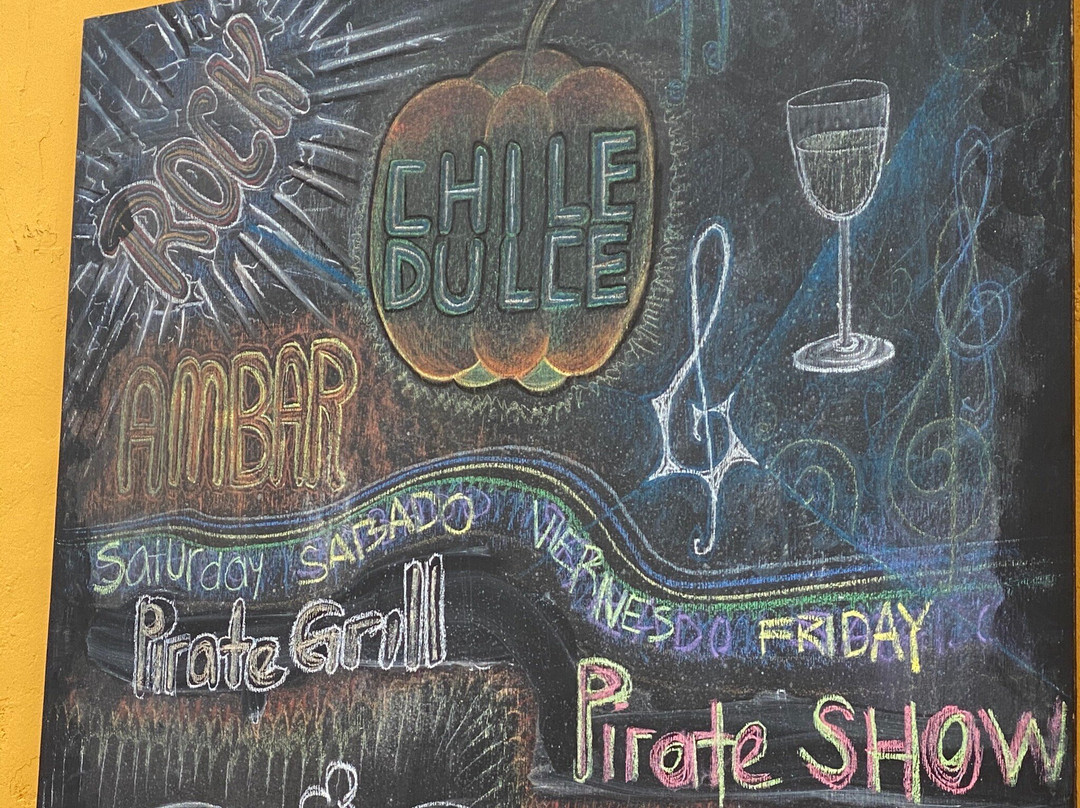 ROCK
CHILE
DULCE
AMBAR
Saturday SABADO
VIERNES FRIDAY
Pirate Grill
Pirate SHOW